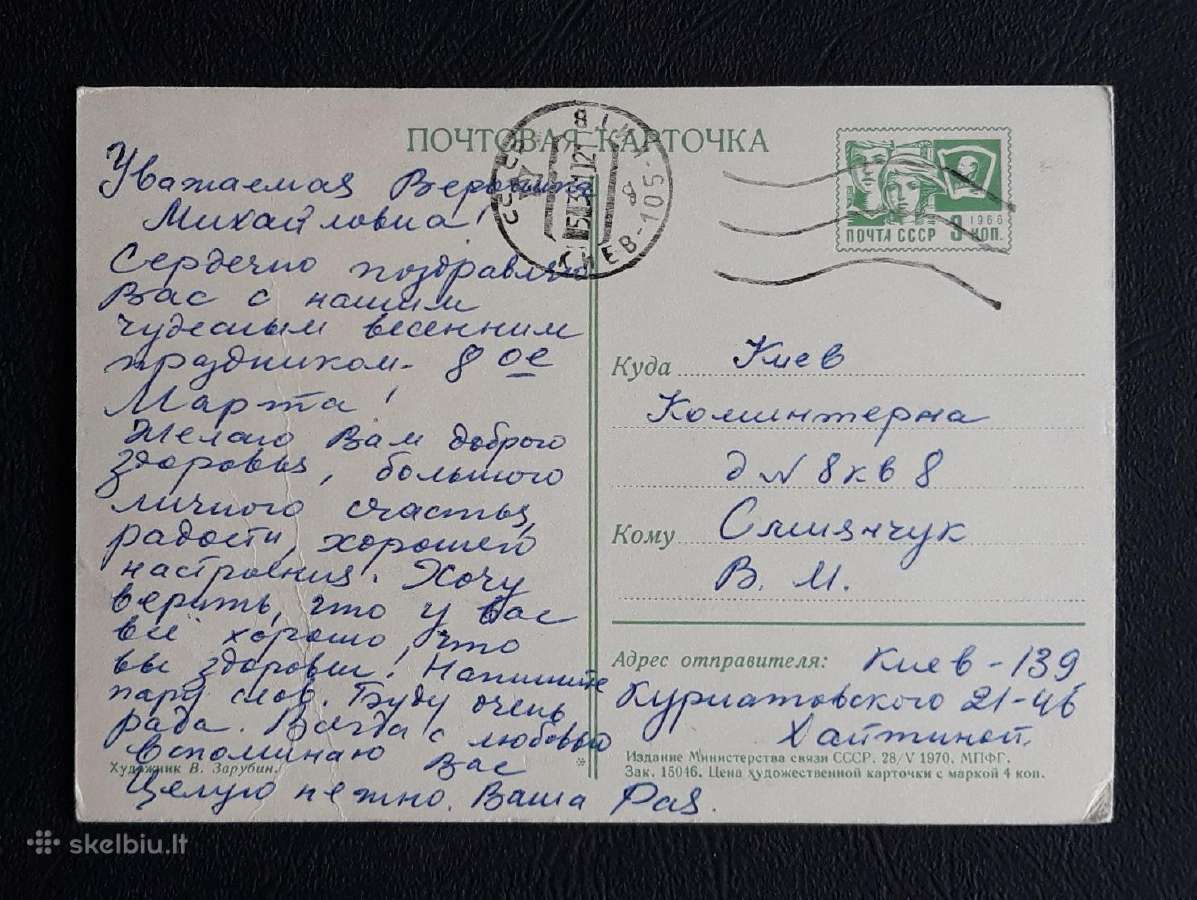 ПОЧТОВАЯ КАРТОЧКА
Уважаемая
Михайловна!
Сердечно поздравляю
Вас с нашим
чудесным весенним
праздником - 8 ое
Марта!
Желаю Вам доброго
здоровья, большого
личного счастья,
радости, хорошего
настроения. Хочу
верить, что у вас
всё хорошо, что
вы здоровы! Напишите
пару слов. Буду очень
рада. Всегда с любовью
вспоминаю Вас
Целую нежно. Ваша Рая.
Художник В. Зарубин.
СССР
КИЕВ-105
1966
ПОЧТА СССР 3 КОП.
Куда Киев
Коминтерна
д N 8 кв 8
Кому
В. М.
Адрес отправителя: Киев - 139
Курнатовского 21-46
Хайтиной.
Издание Министерства связи СССР. 28/V 1970. МПФГ.
Зак. 15046. Цена художественной карточки с маркой 4 коп.
skelbiu.lt